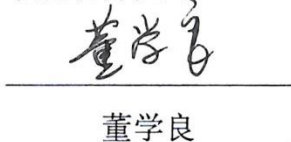 董学良
董学良